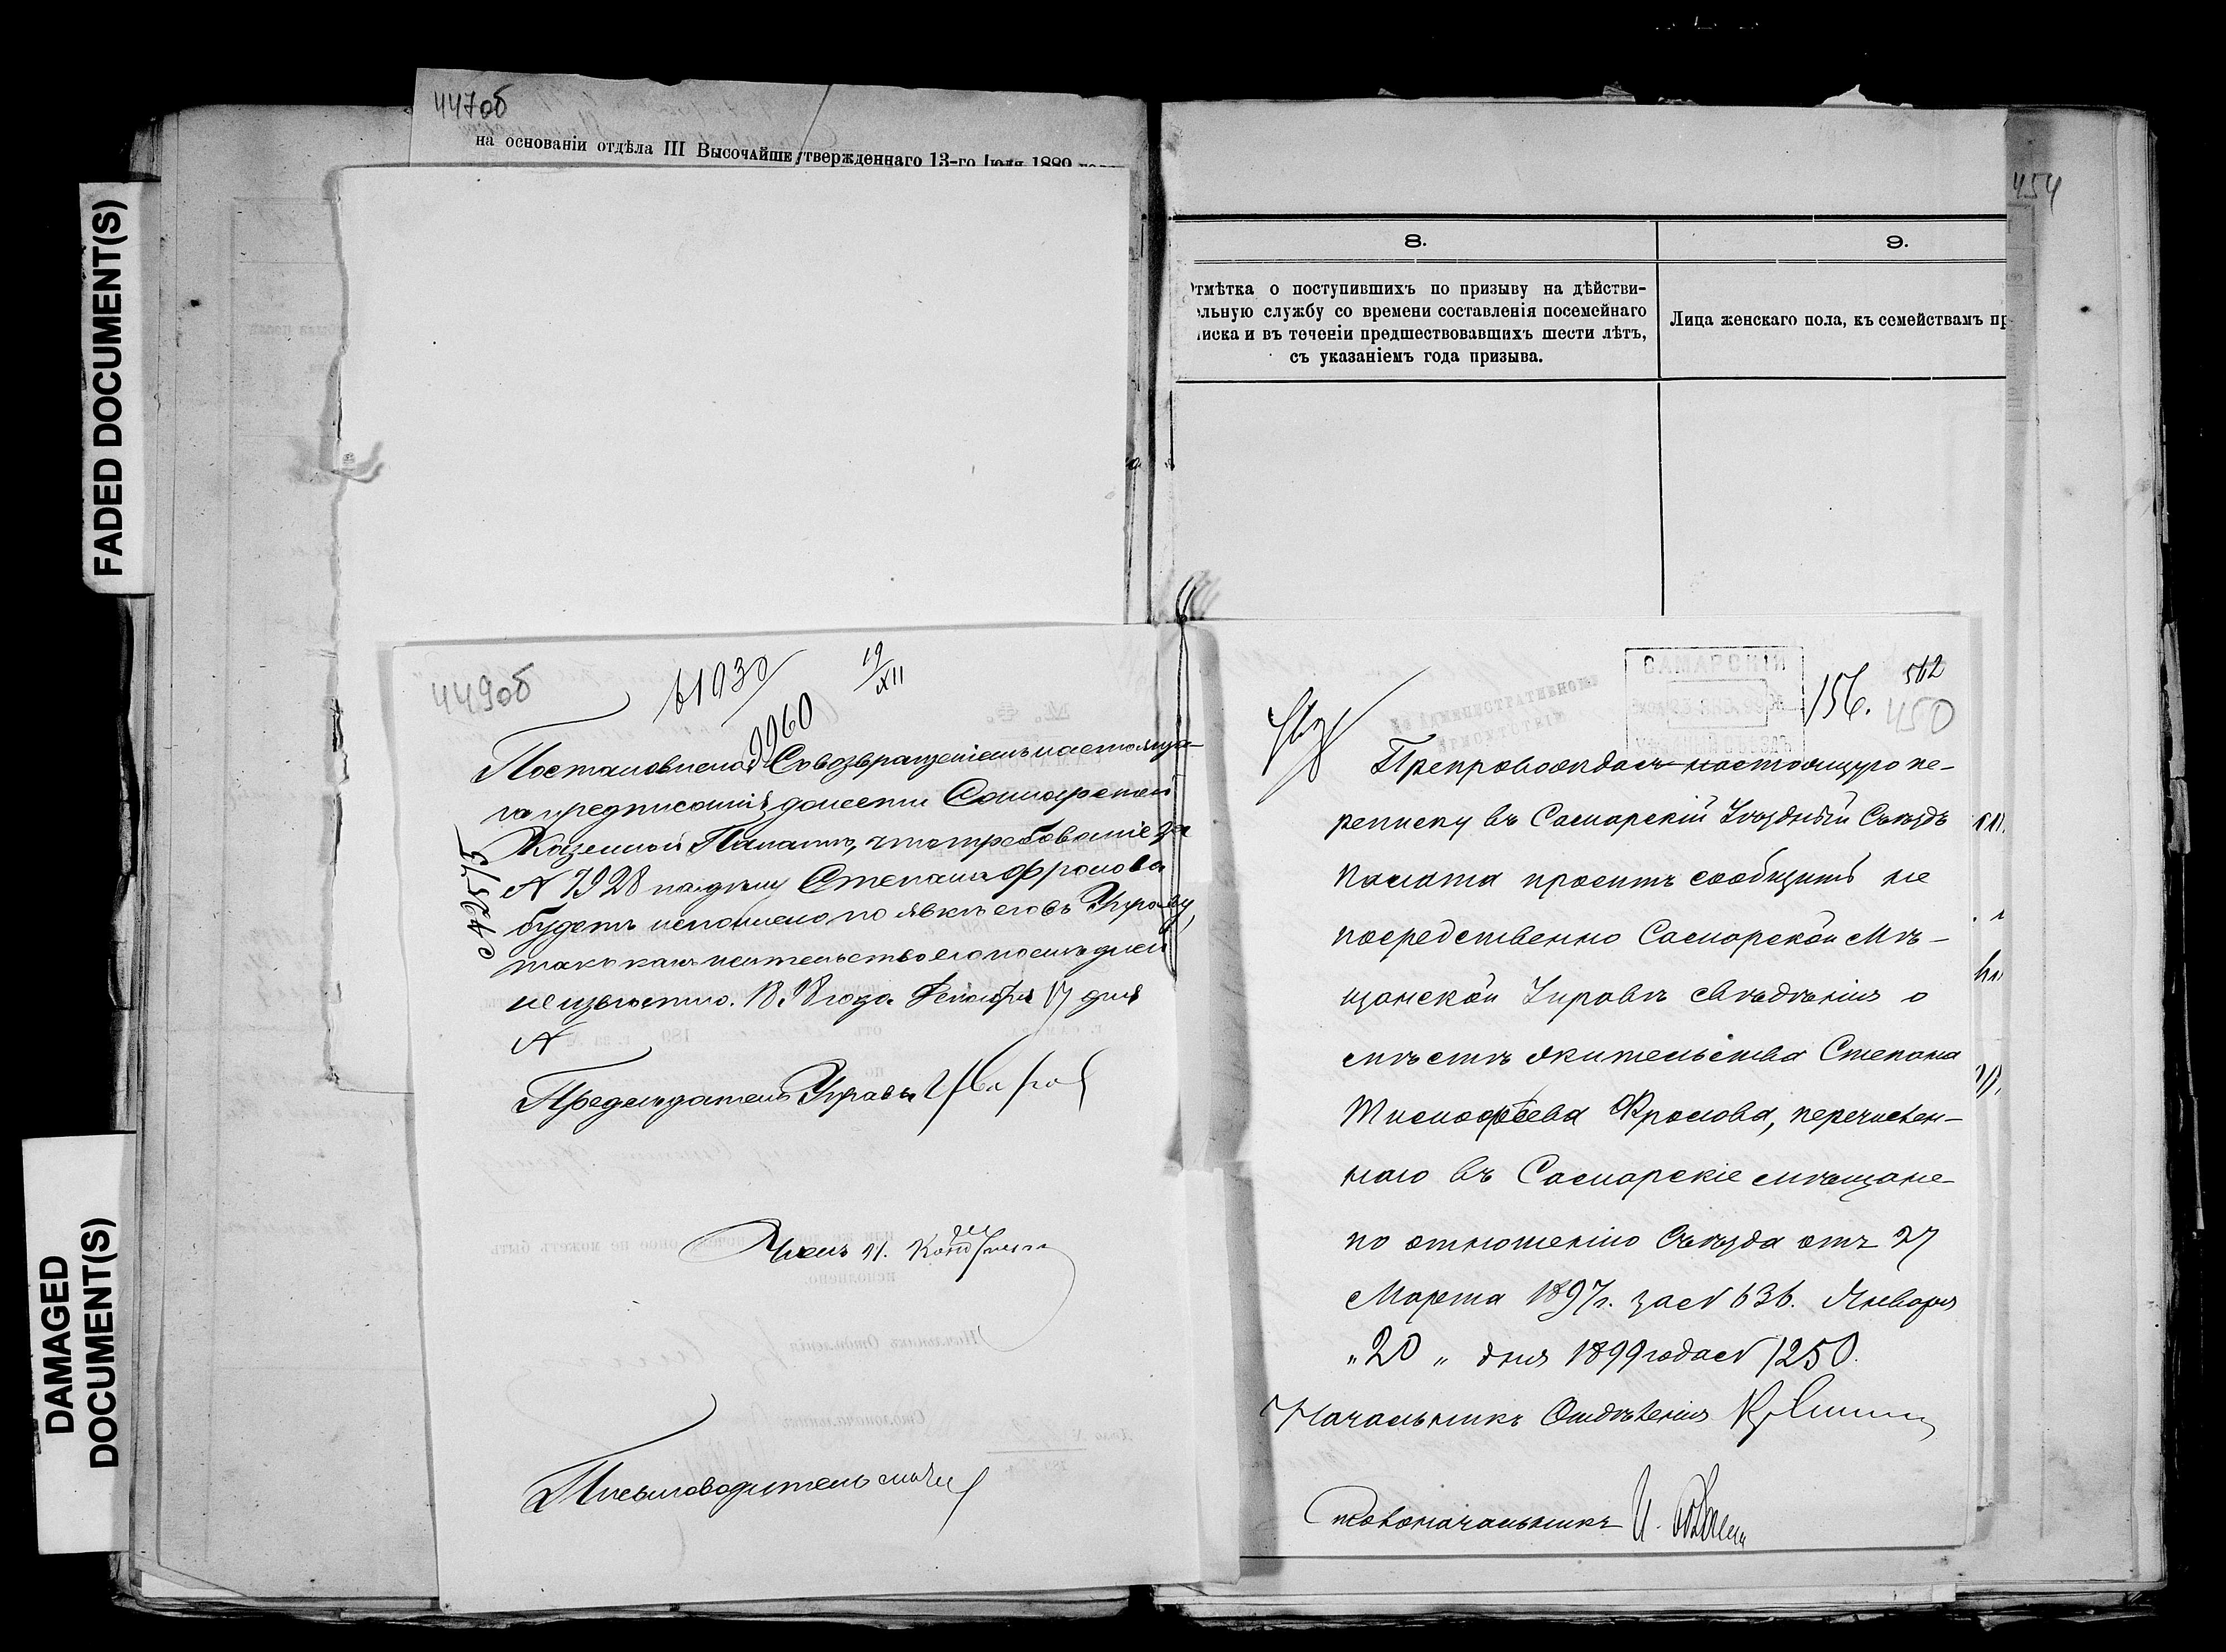 447об
на основаніи отдѣла III Высочайше утвержденнаго 13-го Іюля 1889 года
449об
61030
19/XII
9960
Постановлено: Съ возвращеніемъ настояща-
го предписанія донести Самарской
Казенной Палатѣ, что требованіе за
№ 7928 по дѣлу Степана Фролова
будетъ исполнено по явкѣ его въ Управу,
такъ какъ жительство его по сихъ дней
неизвѣстно. 1898 года Декабря 17 дня
№
№ 2575
Предсѣдатель Управы
Членъ И.
Письмоводитель
454
8.
9.
Отмѣтка о поступившихъ по призыву на дѣйстви-
ельную службу со времени составленія посемейнаго
писка и въ теченіи предшествовавшихъ шести лѣтъ,
съ указаніемъ года призыва.
Лица женскаго пола, къ семействамъ пр
САМАРСКІЙ
УѢЗДНЫЙ СЪѢЗДЪ
по АДМИНИСТРАТИВНОМУ
ПРИСУТСТВІЮ
156.
562
450
Препровождая настоящую пе-
реписку въ Самарскій Уѣздный Съѣздъ
палата проситъ сообщить не
посредственно Самарской Мѣ-
щанской Управѣ свѣдѣнія о
мѣстѣ жительства Степана
Тимофеева Фролова, перечислен-
наго въ Самарскіе мѣщане
по отношенію Съѣзда отъ 27
Марта 1897г. за № 636. Января
„20„ дня 1899 года № 1250.
Начальникъ Отдѣленія
Столоначальникъ И.
FADED DOCUMENT(S)
DAMAGED
DOCUMENT(S)